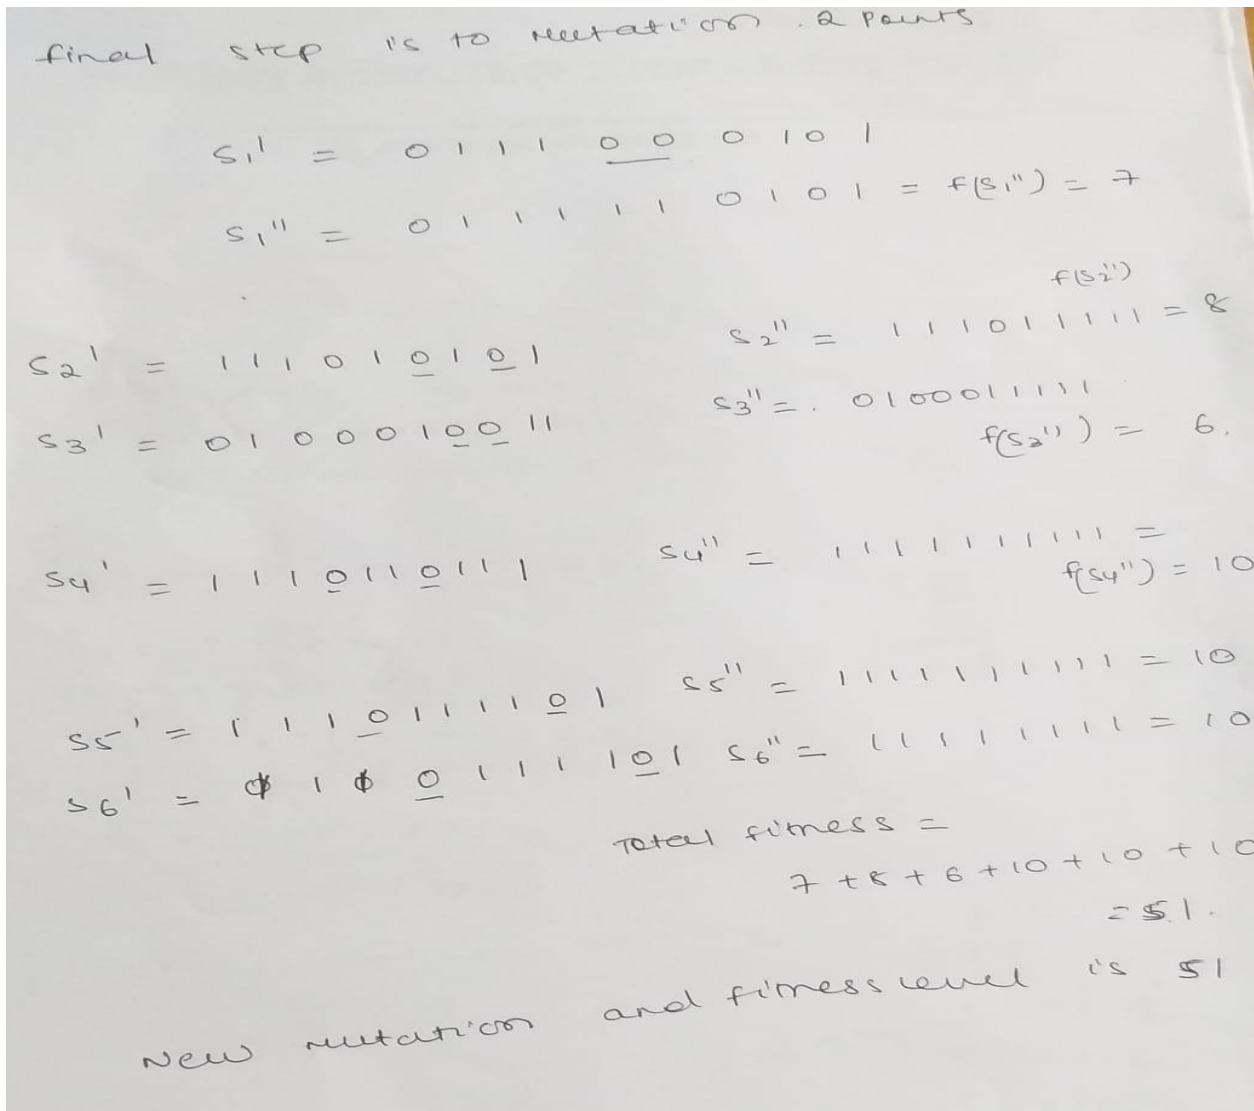 final step is to mutation 2 points
S1' = 0111000101
S1" = 0111110101 = f(S1") = 7
f(S2")
S2' = 1110101​01 S2" = 111011111 = 8
S3' = 0100010011 S3" = . 0100011111
f(S2") = 6.
S4' = 1110110111 S4" = 1111111111 =
f(S4") = 10
S5' = 1110111101 S5" = 1111111111 = 10
S6' = 0100111101 S6" = 111111111 = 10
Total fitness =
7 + 8 + 6 + 10 + 10 + 10
= 51.
New mutation and fitness level is 51